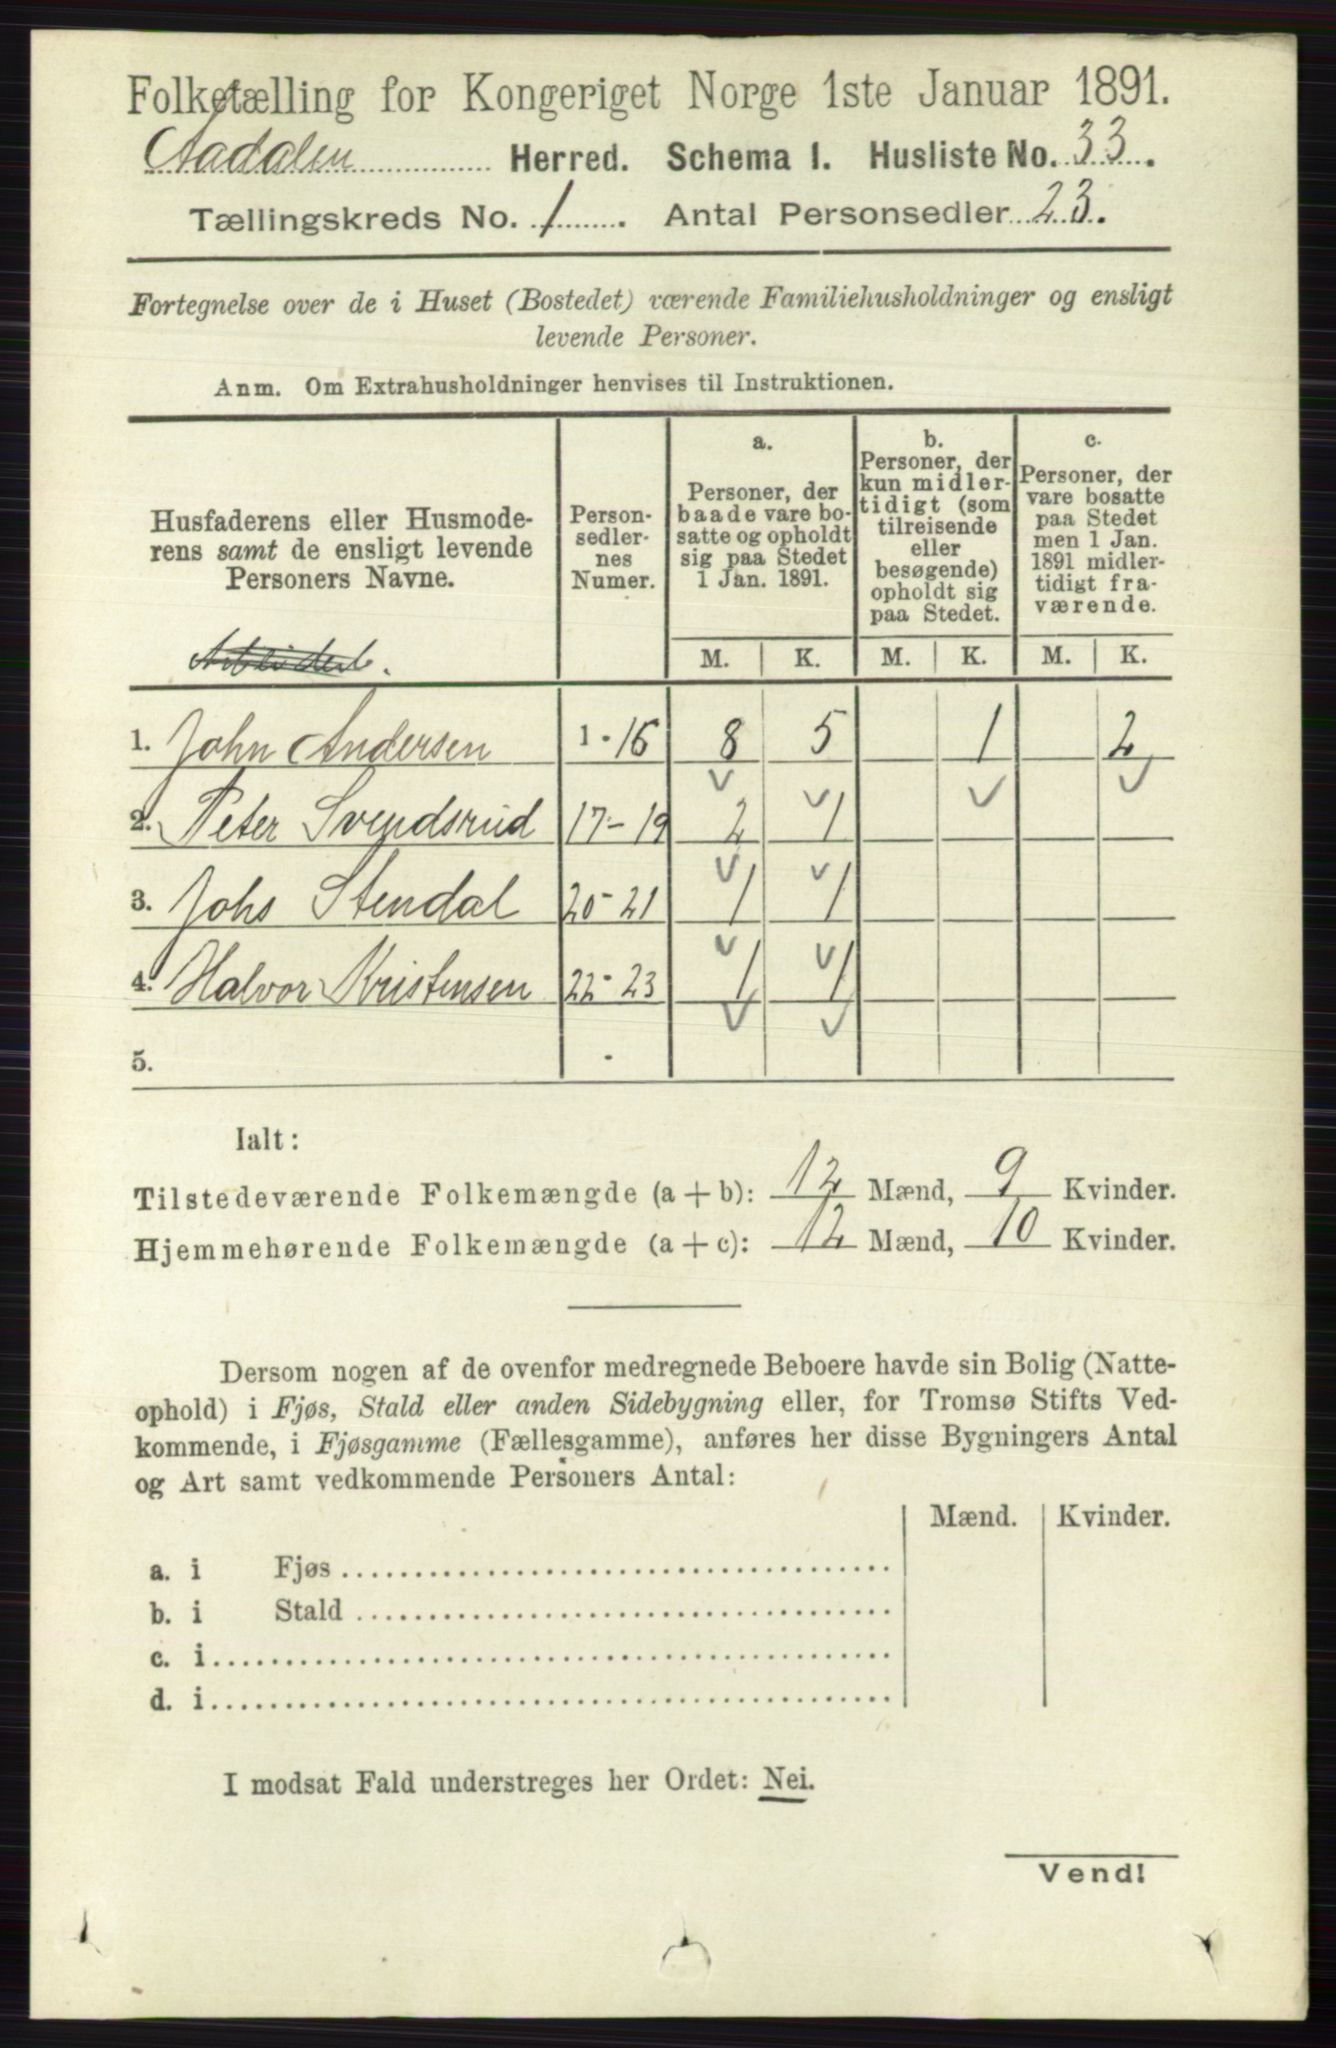 Folketælling for Kongeriget Norge 1ste Januar 1891.
Aadalen Herred. Schema I. Husliste No. 33.
Tællingskreds No. 1. Antal Personsedler 23.
Fortegnelse over de i Huset (Bostedet) værende Familiehusholdninger og ensligt
levende Personer.
Anm. Om Extrahusholdninger henvises til Instruktionen.
Husfaderens eller Husmode-
rens samt de ensligt levende
Personers Navne.
Person-
sedler-
nes
Numer.
a.
Personer, der
baade vare bo-
satte og opholdt
sig paa Stedet
1 Jan. 1891.
b.
Personer, der
kun midler-
tidigt (som
tilreisende
eller
besøgende)
opholdt sig
paa Stedet.
c.
Personer, der
vare bosatte
paa Stedet
men 1 Jan.
1891 midler-
tidigt fra-
værende.
M. K. M. K. M. K.
1. John Andersen 1-16 8 5 1 2
2. Peter Svendsrud 17-19 2 1
3. Johs Stendal 20-21 1 1
4. Halvor Kristensen 22-23 1 1
5. -
Ialt:
Tilstedeværende Folkemængde (a + b): 12 Mænd, 9 Kvinder.
Hjemmehørende Folkemængde (a + c): 12 Mænd, 10 Kvinder.
Dersom nogen af de ovenfor medregnede Beboere havde sin Bolig (Natte-
ophold) i Fjøs, Stald eller anden Sidebygning eller, for Tromsø Stifts Ved-
kommende, i Fjøsgamme (Fællesgamme), anføres her disse Bygningers Antal
og Art samt vedkommende Personers Antal:
Mænd. Kvinder.
a. i Fjøs
b. i Stald
c. i
d. i
I modsat Fald understreges her Ordet: Nei.
Vend!